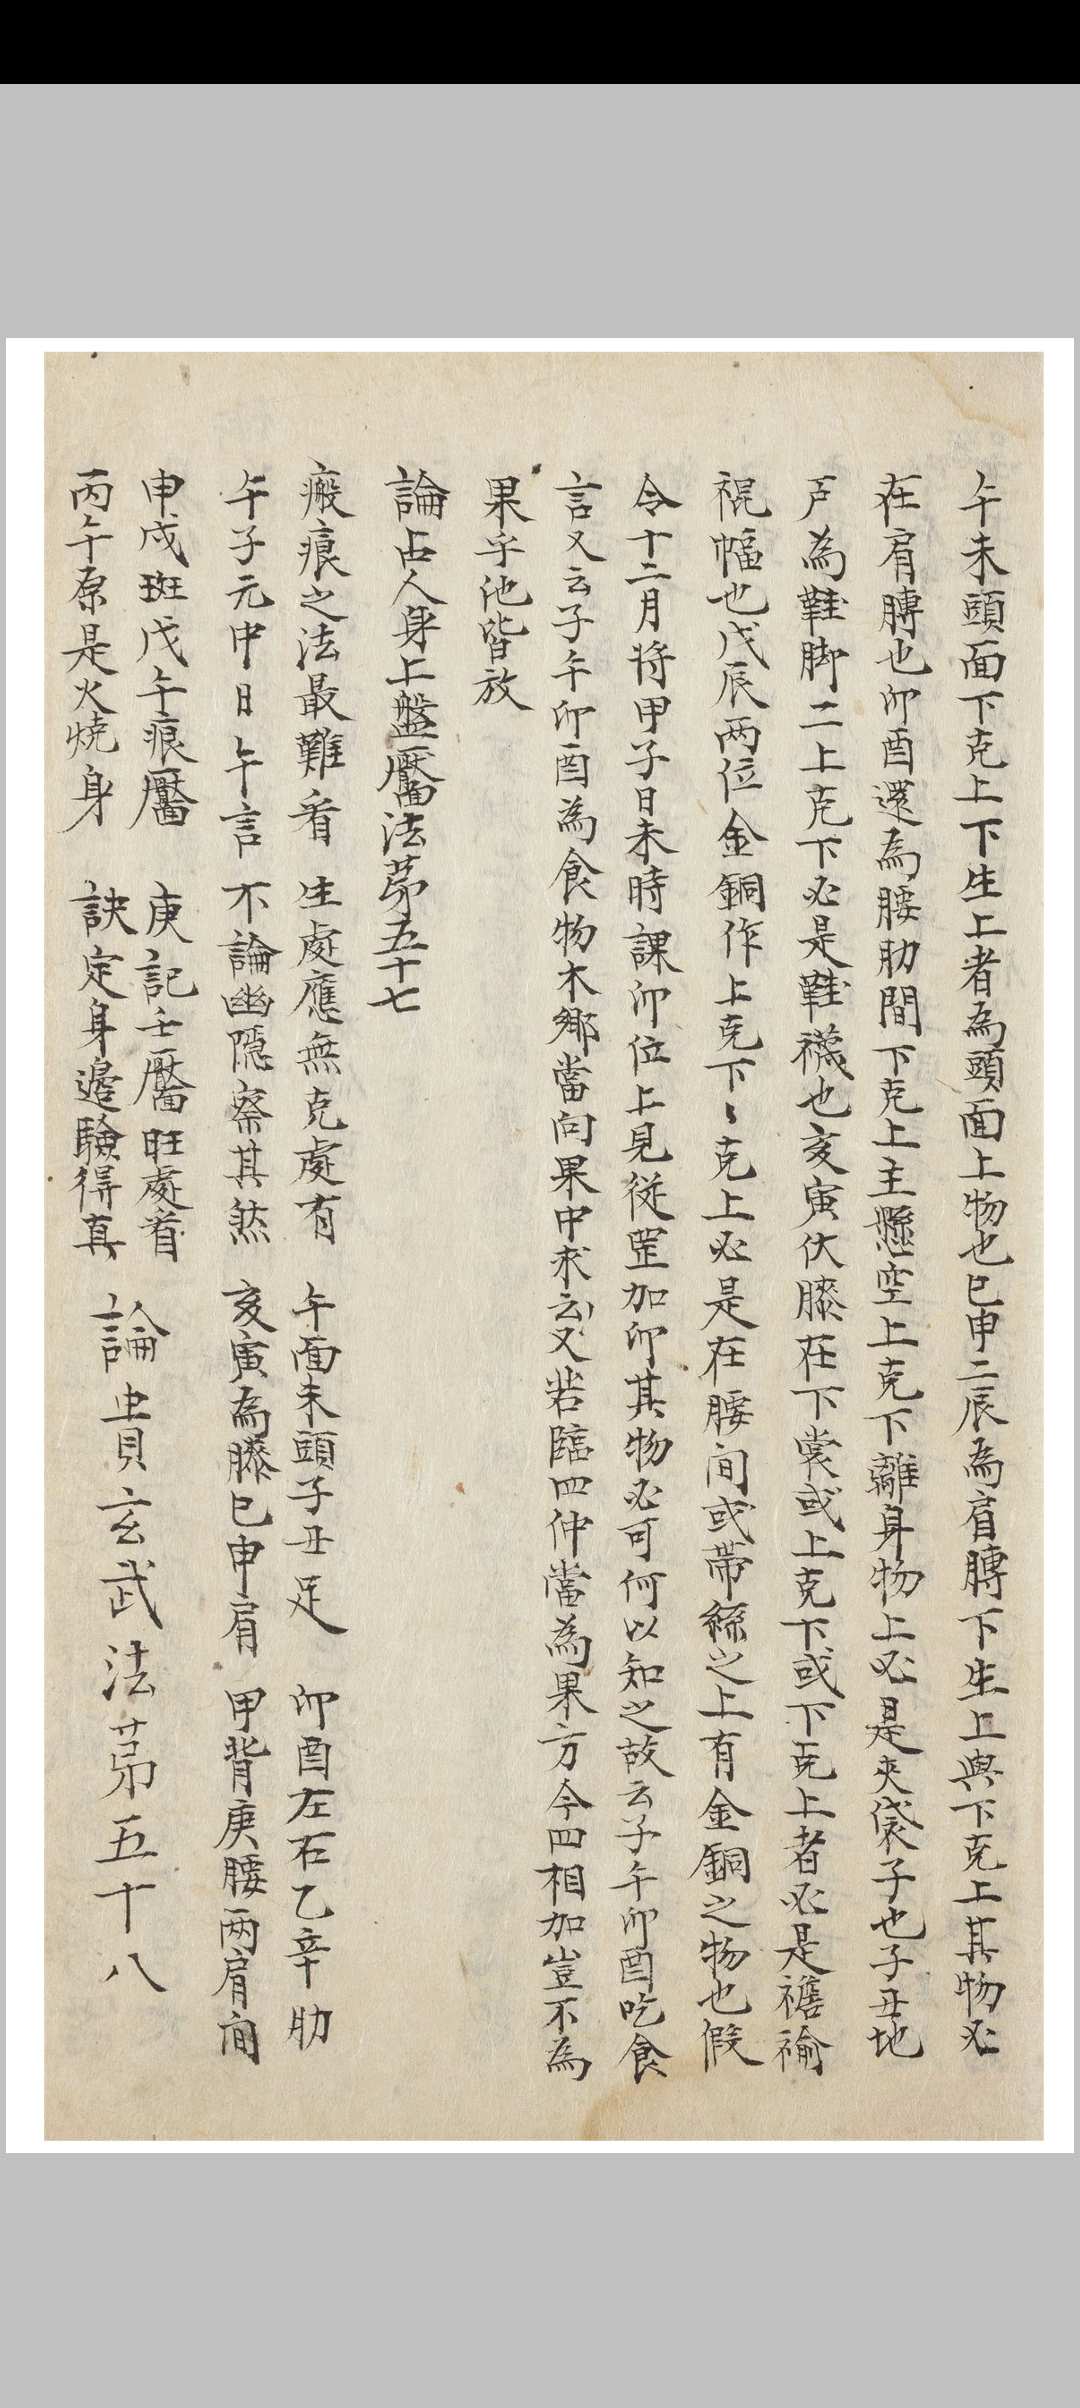 午未頭面下克上下生上者為頭面上物也巳申二辰為肩膊下生上與下克上其物必
在肩膊也卯酉還為腰肋間下克上主懸空上克下離身物上必是夾袋子也子丑地
戶為鞋脚二上克下必是鞋襪也亥寅伏膝在下裳或上克下或下克上者必是襜褕
裩幅也戊辰两位金銅作上克下〻克上必是在腰间或帶絲之上有金銅之物也假
令十二月将甲子日未時課卯位上見從罡加卯其物必可何以知之故云子午卯酉吃食
言又云子午卯酉為食物木鄉當向果中求云又若臨四仲當為果方今四相加豈不為
果乎池皆放
論占人身上盤黶法苐五十七
瘢痕之法最難看 生處應無克處有 午面未頭子丑足 卯酉左右乙辛肋
午子元中日午言 不論幽隱察其然 亥寅為膝巳申肩 甲背庚腰两肩间
申戍斑戊午痕黶 庚記壬黶旺處看
丙午原是火燒身 訣定身邉驗得真
論出貢玄武法苐五十八